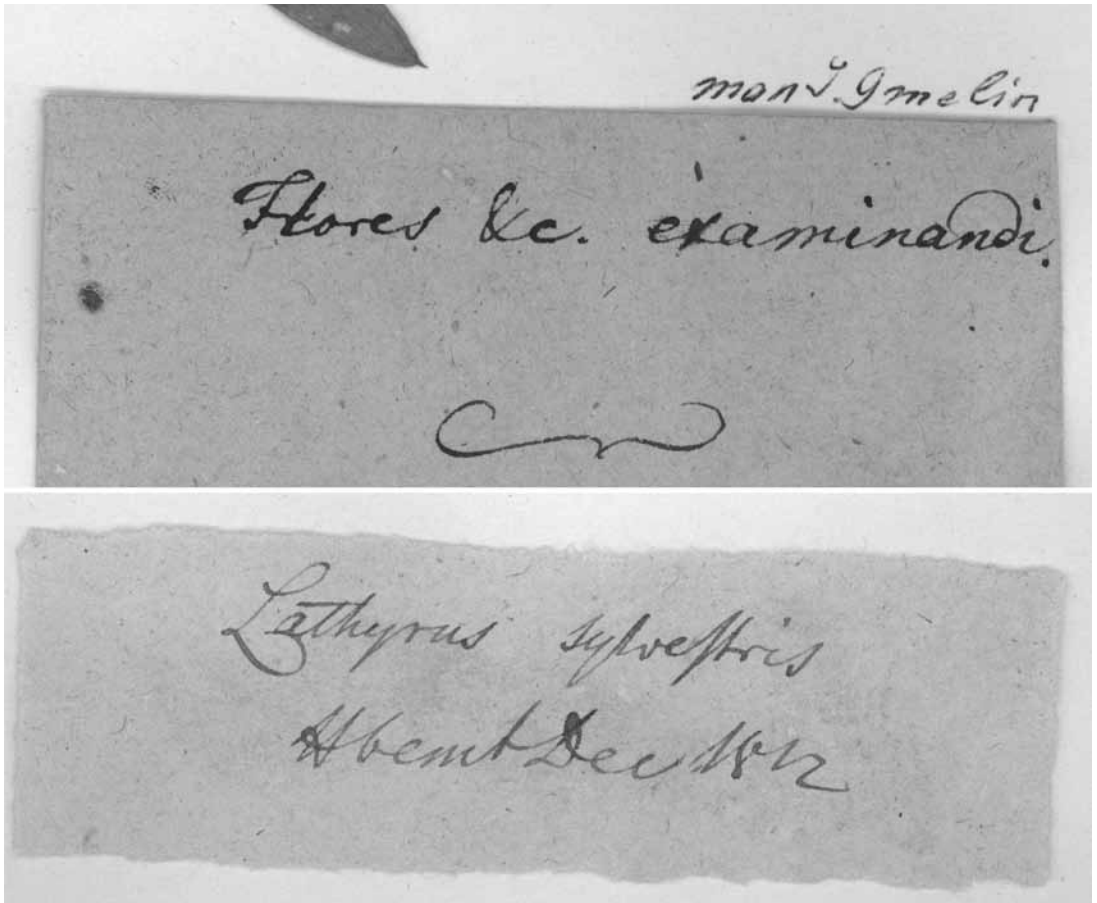 manu Gmelin
Flores &c. examinandi.
Lathyrus sylvestris
Dec 1812